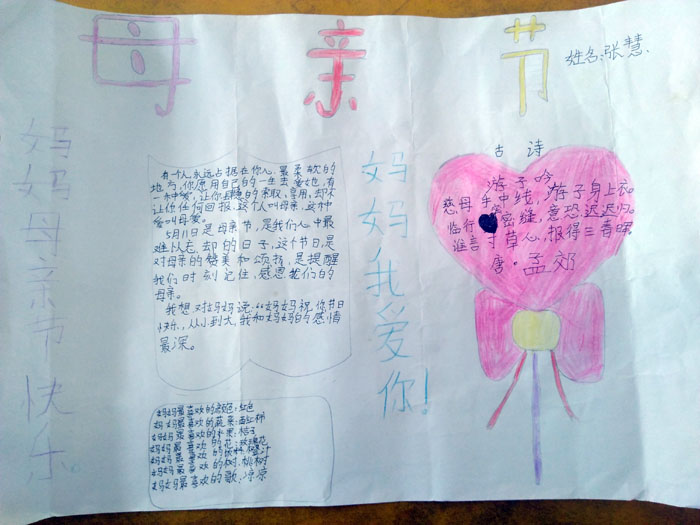 母亲节
姓名:张慧
妈妈母亲节快乐。
有个人,永远占据在你心最柔软的
地方,你愿用自己的一生去爱她,有
一种爱,让你肆意的索取,享用,却不
让你任何回报,这个人叫母亲,这种
爱叫母爱。
5月11日是母亲节,是我们心中最
难以忘却的日子,这个节日,是
对母亲的赞美和颂扬,是提醒
我们时刻记住,感恩我们的
母亲。
我想对妈妈说:“妈妈祝你节日
快乐,从小到大,我和妈妈的感情
最深。
妈妈最喜欢的颜色:红色
妈妈最喜欢的蔬菜:西红柿
妈妈最喜欢的水果:桔子
妈妈最喜欢的花:玫瑰花
妈妈最喜欢的饮料:橙汁
妈妈最喜欢的树:桃树
妈妈最喜欢的歌:凉凉
妈妈我爱你!
古诗
游子吟
慈母手中线,游子身上衣。
临行密密缝,意恐迟迟归。
谁言寸草心,报得三春晖
唐·孟郊